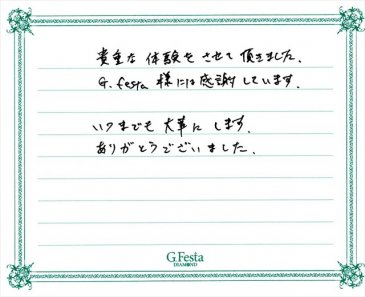 貴重な体験をさせて頂きました.
G.festa 様には感謝しています.
いつまでも大事にします.
ありがとうございました.
G.Festa
DIAMOND